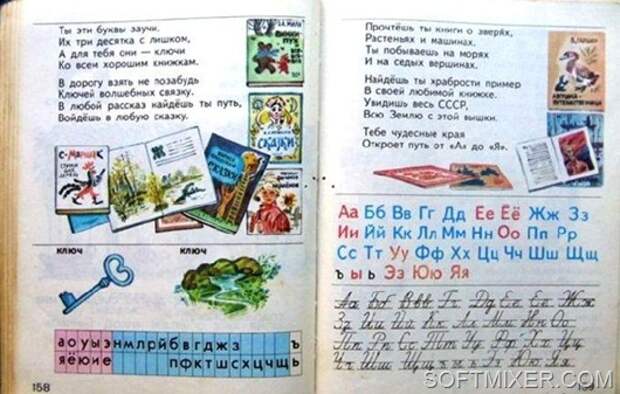 Ты эти буквы заучи.
Их три десятка с лишком,
А для тебя они — ключи
Ко всем хорошим книжкам.
В дорогу взять не позабудь
Ключей волшебных связку.
В любой рассказ найдёшь ты путь,
Войдёшь в любую сказку.
С. МАРШАК
СКАЗКИ
КЛЮЧ
КЛЮЧ
а о у ы э н м л р й б в г д ж з ъ
я ё ю и е п ф к т ш с х ц ч щ ь
158
Прочтёшь ты книги о зверях,
Растеньях и машинах.
Ты побываешь на морях
И на седых вершинах.
Найдёшь ты храбрости пример
В своей любимой книжке.
Увидишь весь СССР,
Всю Землю с этой вышки.
Тебе чудесные края
Откроет путь от «А» до «Я».
Аа Бб Вв Гг Дд Ее Её Жж Зз
Ии Йй Кк Лл Мм Нн Оо Пп Рр
Сс Тт Уу Фф Хх Цц Чч Шш Щщ
ъ ы ь Ээ Юю Яя
Аа Бб Вв Гг Дд Ее Её Жж
Зз Ии Йй Кк Лл Мм Нн Оо
Пп Рр Сс Тт Уу Фф Хх Цц
Чч Шш Щщ ъ ы ь Ээ Юю Яя
159
SOFTMIXER.COM